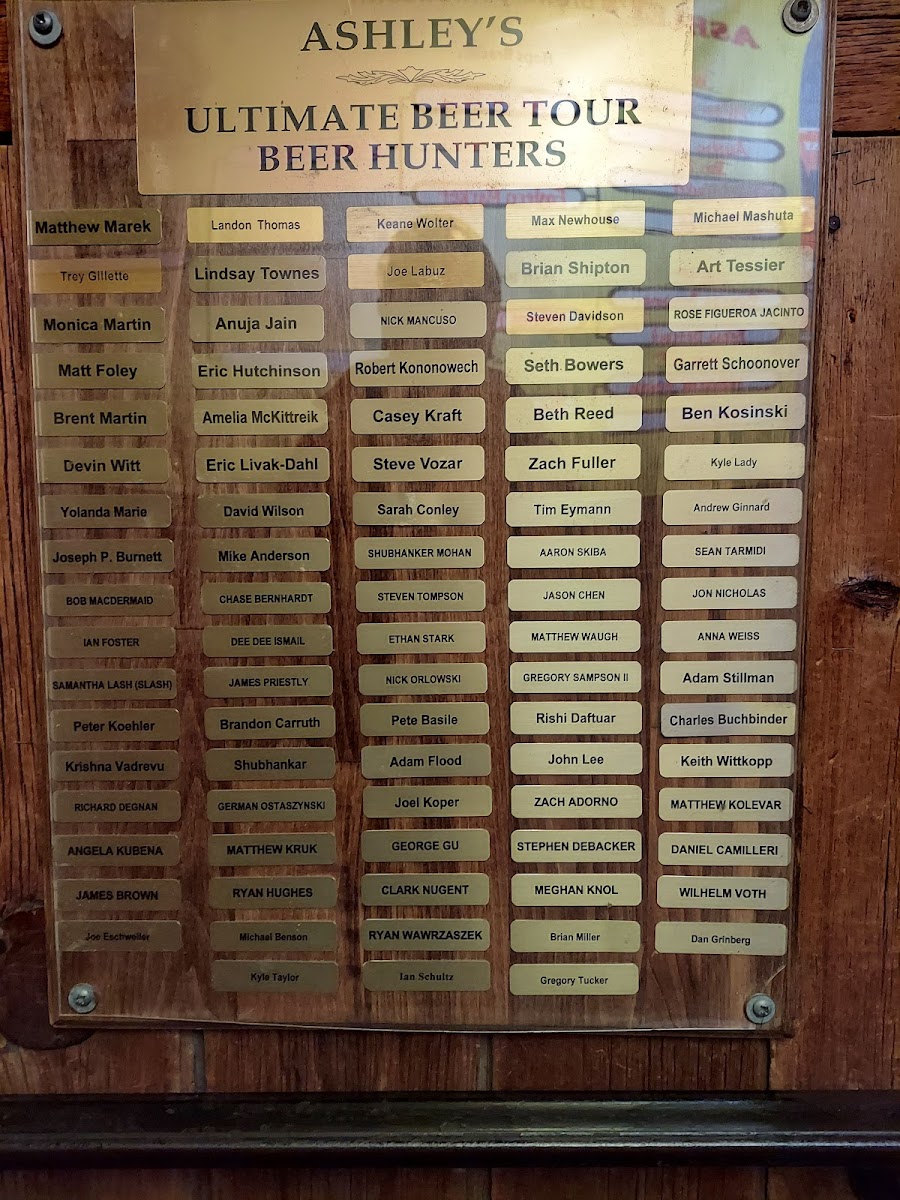 ASHLEY'S
ULTIMATE BEER TOUR
BEER HUNTERS
Matthew Marek Landon Thomas Keane Wolter Max Newhouse Michael Mashuta
Trey Gillette Lindsay Townes Joe Labuz Brian Shipton Art Tessier
Monica Martin Anuja Jain NICK MANCUSO Steven Davidson ROSE FIGUEROA JACINTO
Matt Foley Eric Hutchinson Robert Kononowech Seth Bowers Garrett Schoonover
Brent Martin Amelia McKittreik Casey Kraft Beth Reed Ben Kosinski
Devin Witt Eric Livak-Dahl Steve Vozar Zach Fuller Kyle Lady
Yolanda Marie David Wilson Sarah Conley Tim Eymann Andrew Ginnard
Joseph P. Burnett Mike Anderson SHUBHANKER MOHAN AARON SKIBA SEAN TARMIDI
BOB MACDERMAID CHASE BERNHARDT STEVEN TOMPSON JASON CHEN JON NICHOLAS
IAN FOSTER DEE DEE ISMAIL ETHAN STARK MATTHEW WAUGH ANNA WEISS
SAMANTHA LASH (SLASH) JAMES PRIESTLY NICK ORLOWSKI GREGORY SAMPSON II Adam Stillman
Peter Koehler Brandon Carruth Pete Basile Rishi Daftuar Charles Buchbinder
Krishna Vadrevu Shubhankar Adam Flood John Lee Keith Wittkopp
RICHARD DEGNAN GERMAN OSTASZYNSKI Joel Koper ZACH ADORNO MATTHEW KOLEVAR
ANGELA KUBENA MATTHEW KRUK GEORGE GU STEPHEN DEBACKER DANIEL CAMILLERI
JAMES BROWN RYAN HUGHES CLARK NUGENT MEGHAN KNOL WILHELM VOTH
Joe Eschweiler Michael Benson RYAN WAWRZASZEK Brian Miller Dan Grinberg
Kyle Taylor Ian Schultz Gregory Tucker